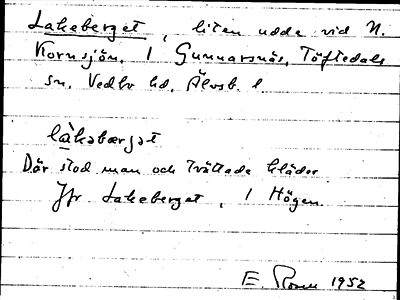 Lakeberget, liten udde vid N.
Kornsjön, 1 Gunnarsnäs, Töftedals
sn, Vedbo hd, Älvsb. l.
là̀kəbærjət
Där stod man och tvättade kläder
Jfr Lakeberget, 1 Högen.
E. Rosen 1952